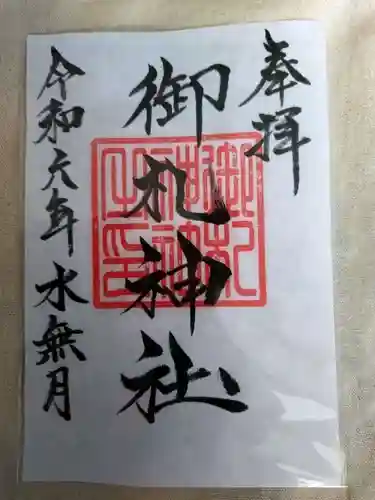 奉拝
御札神社
令和六年水無月